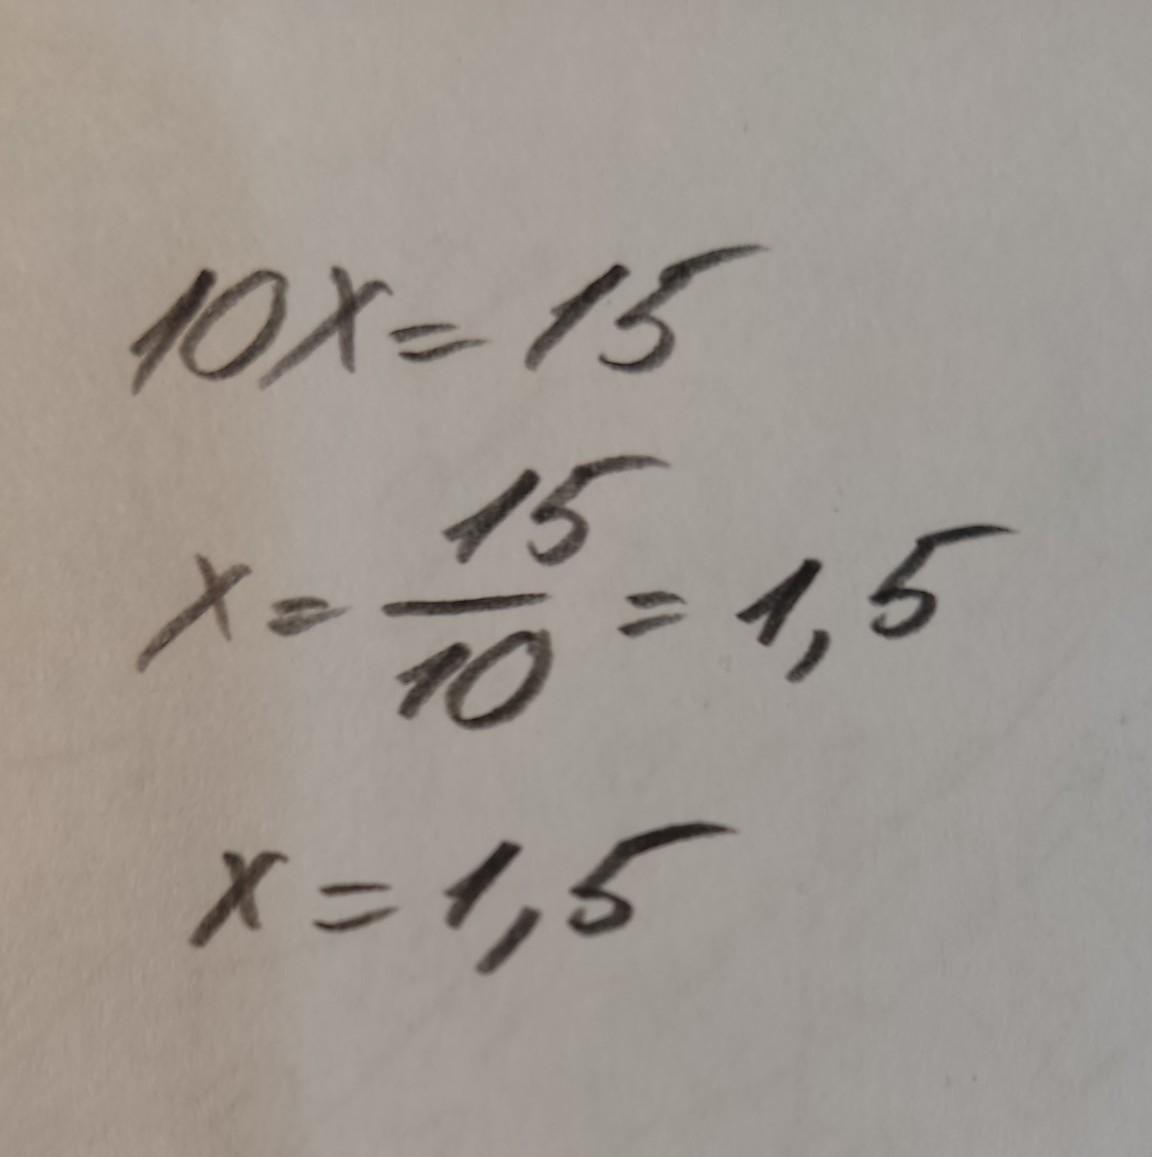 10x = 15
x = 15/10 = 1,5
x = 1,5